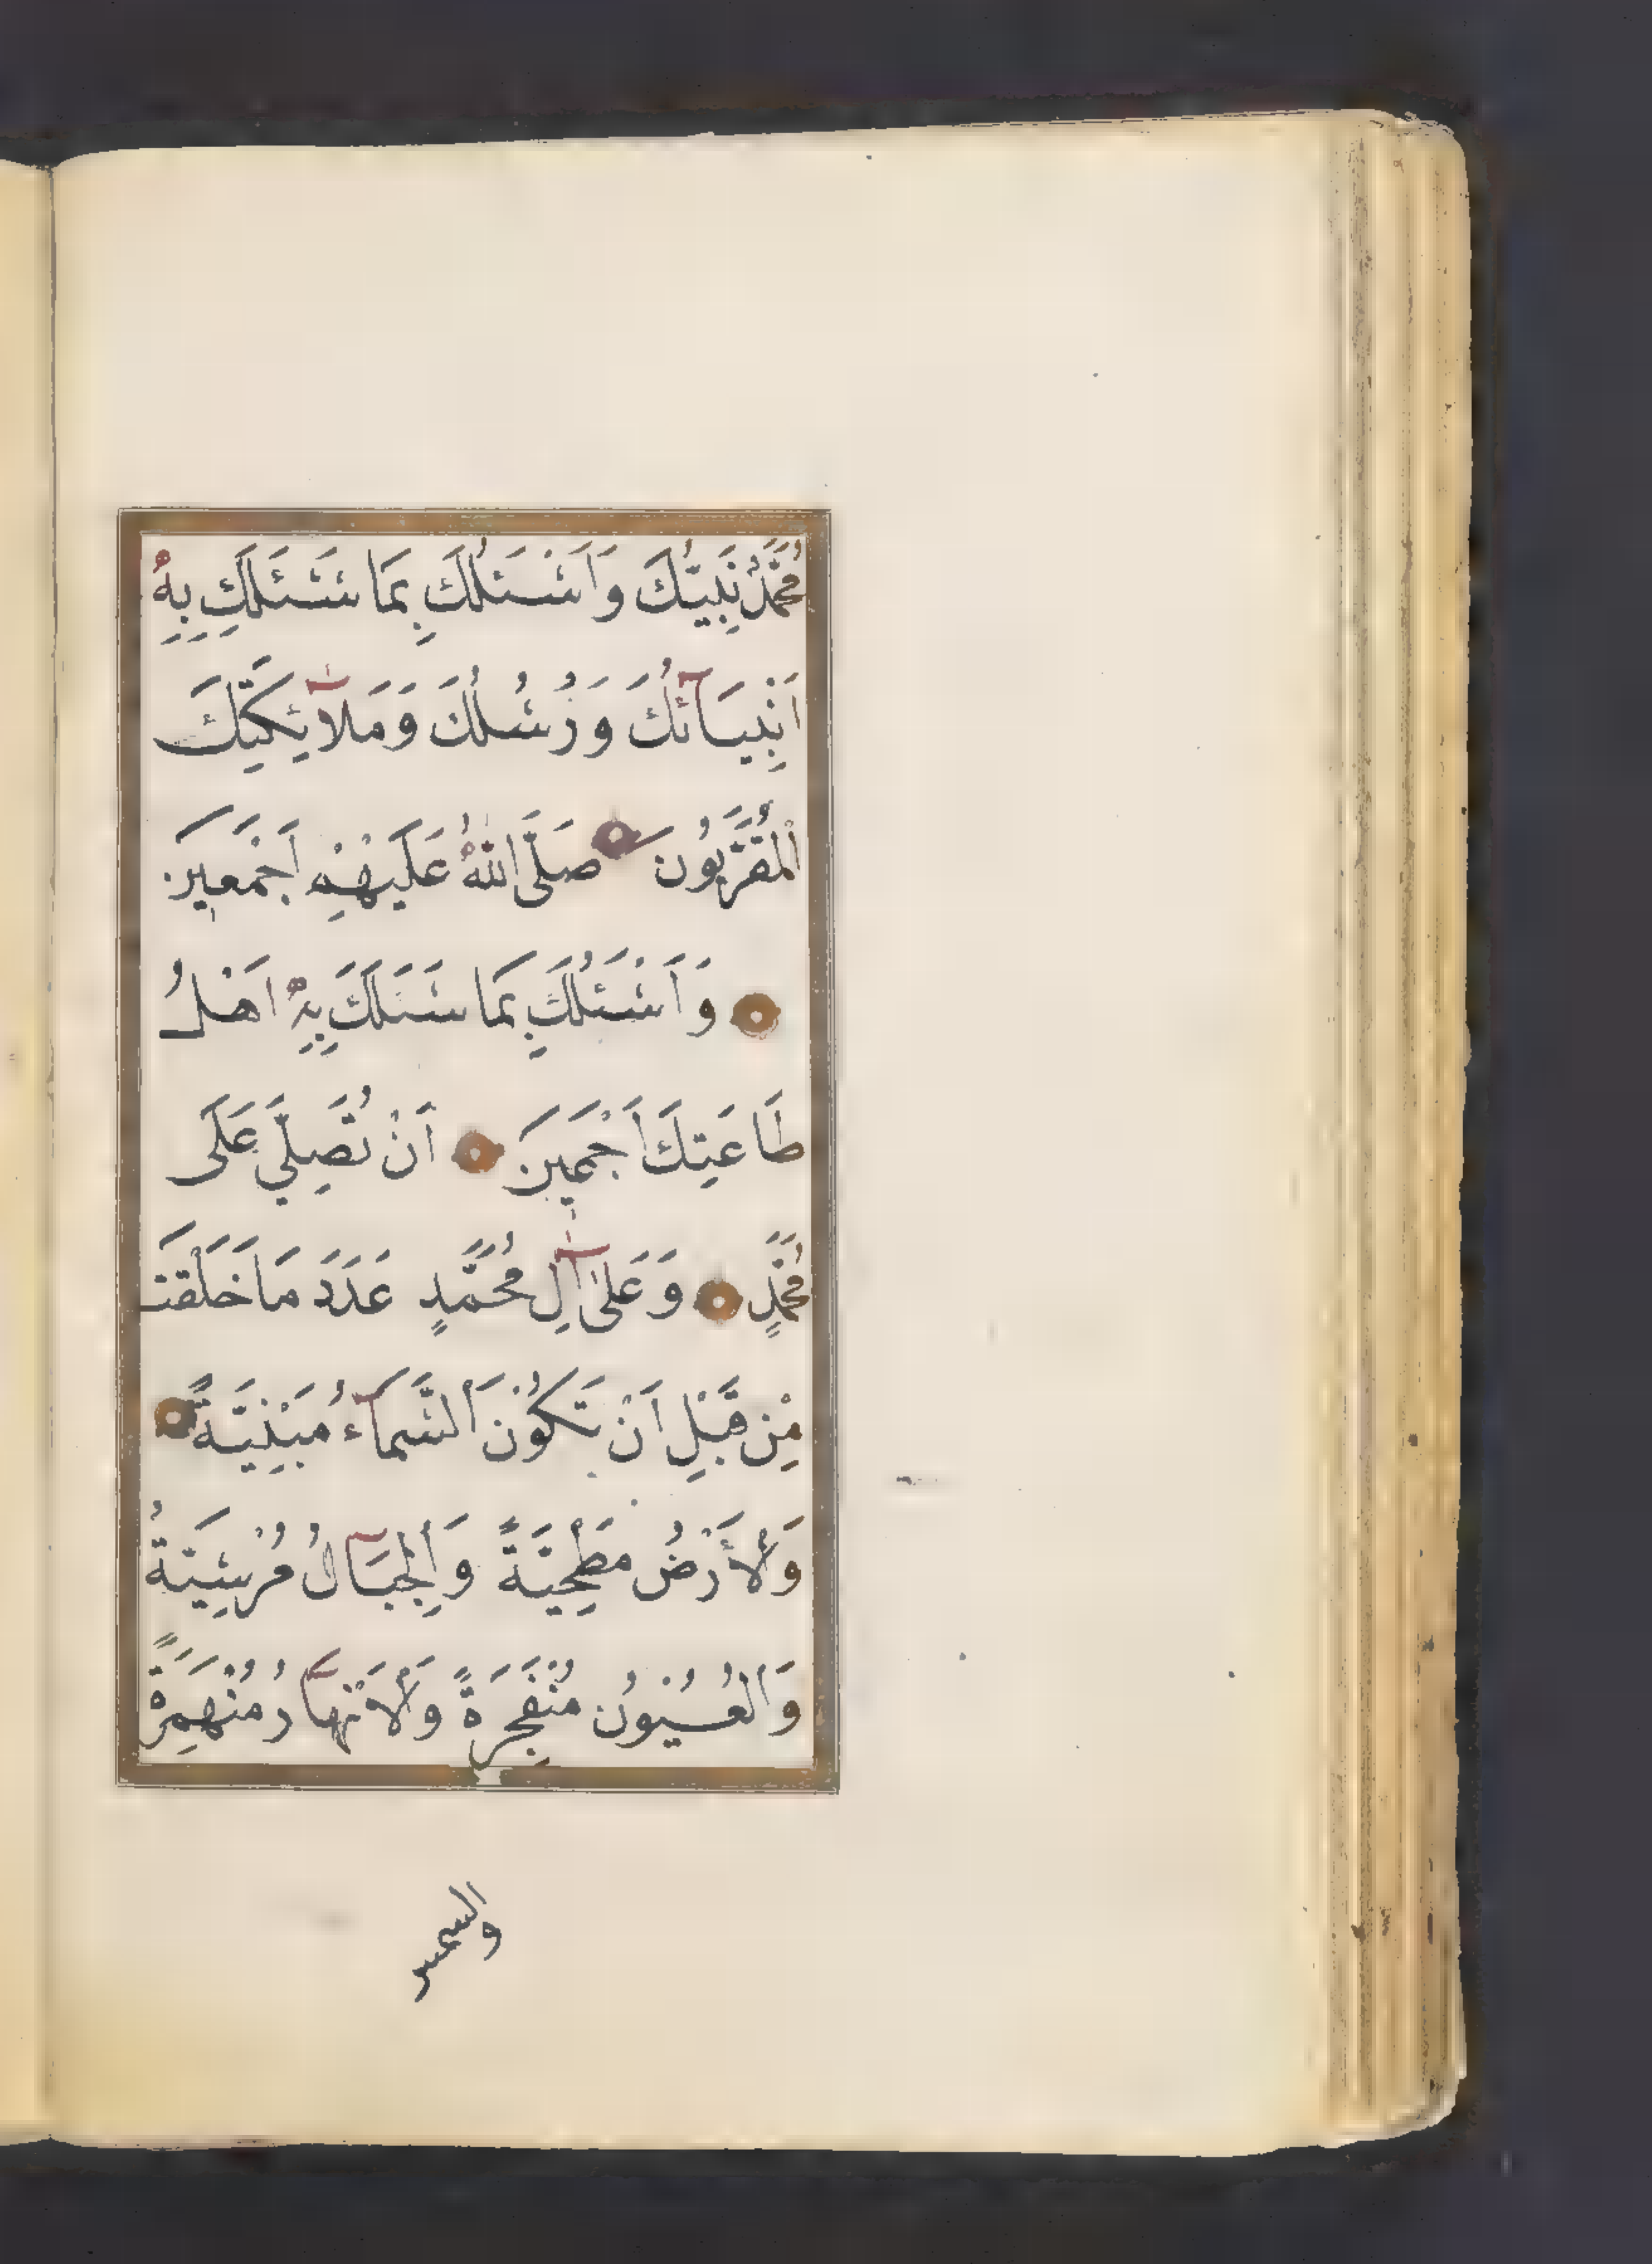 مُحَمَّدٌ نَبِيُّكَ وَاَسْئَلُكَ بِمَا سَئَلَكَ بِهِ
اَنْبِيَآئُكَ وَرُسُلُكَ وَمَلَآئِكَتِكَ
الْمُقَرَّبُونَ صَلَّى اللهُ عَلَيْهِمْ اَجْمَعِينَ
وَاَسْئَلُكَ بِمَا سَئَلَكَ بِهِ اَهْلُ
طَاعَتِكَ اَجْمَعِينَ اَنْ تُصَلِّيَ عَلَى
مُحَمَّدٍ وَعَلَى آلِ مُحَمَّدٍ عَدَدَ مَا خَلَقْتَ
مِنْ قَبْلِ اَنْ تَكُونَ السَّمَآءُ مَبْنِيَّةً
وَلْأَرْضُ مَطْحِيَّةً وَالْجِبَآلُ مُرْسِيَّةُ
وَالْعُيُونُ مُنْفَجِرَةً وَلْأَنْهَآرُ مُنْهَمِرَةً
والشمس